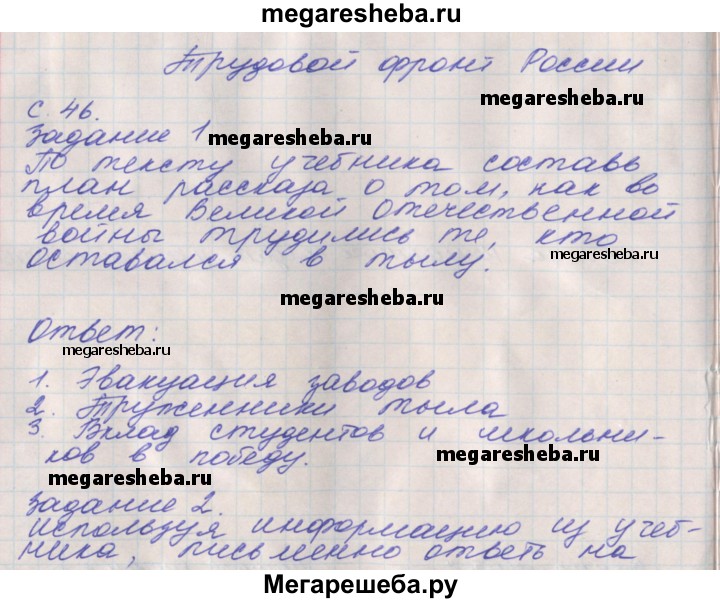 megaresheba.ru
Трудовой фронт России
с. 46.
megaresheba.ru
Задание 1
megaresheba.ru
По тексту учебника составь
план рассказа о том, как во
время Великой Отечественной
войны трудились те, кто
megaresheba.ru
оставался в тылу.
megaresheba.ru
Ответ:
megaresheba.ru
1. Эвакуация заводов
2. Труженники тыла
3. Вклад студентов и школьни-
megaresheba.ru
ков в победу.
megaresheba.ru
Задание 2.
используя информацию из учеб-
ника, письменно ответь на
Мегарешеба.ру